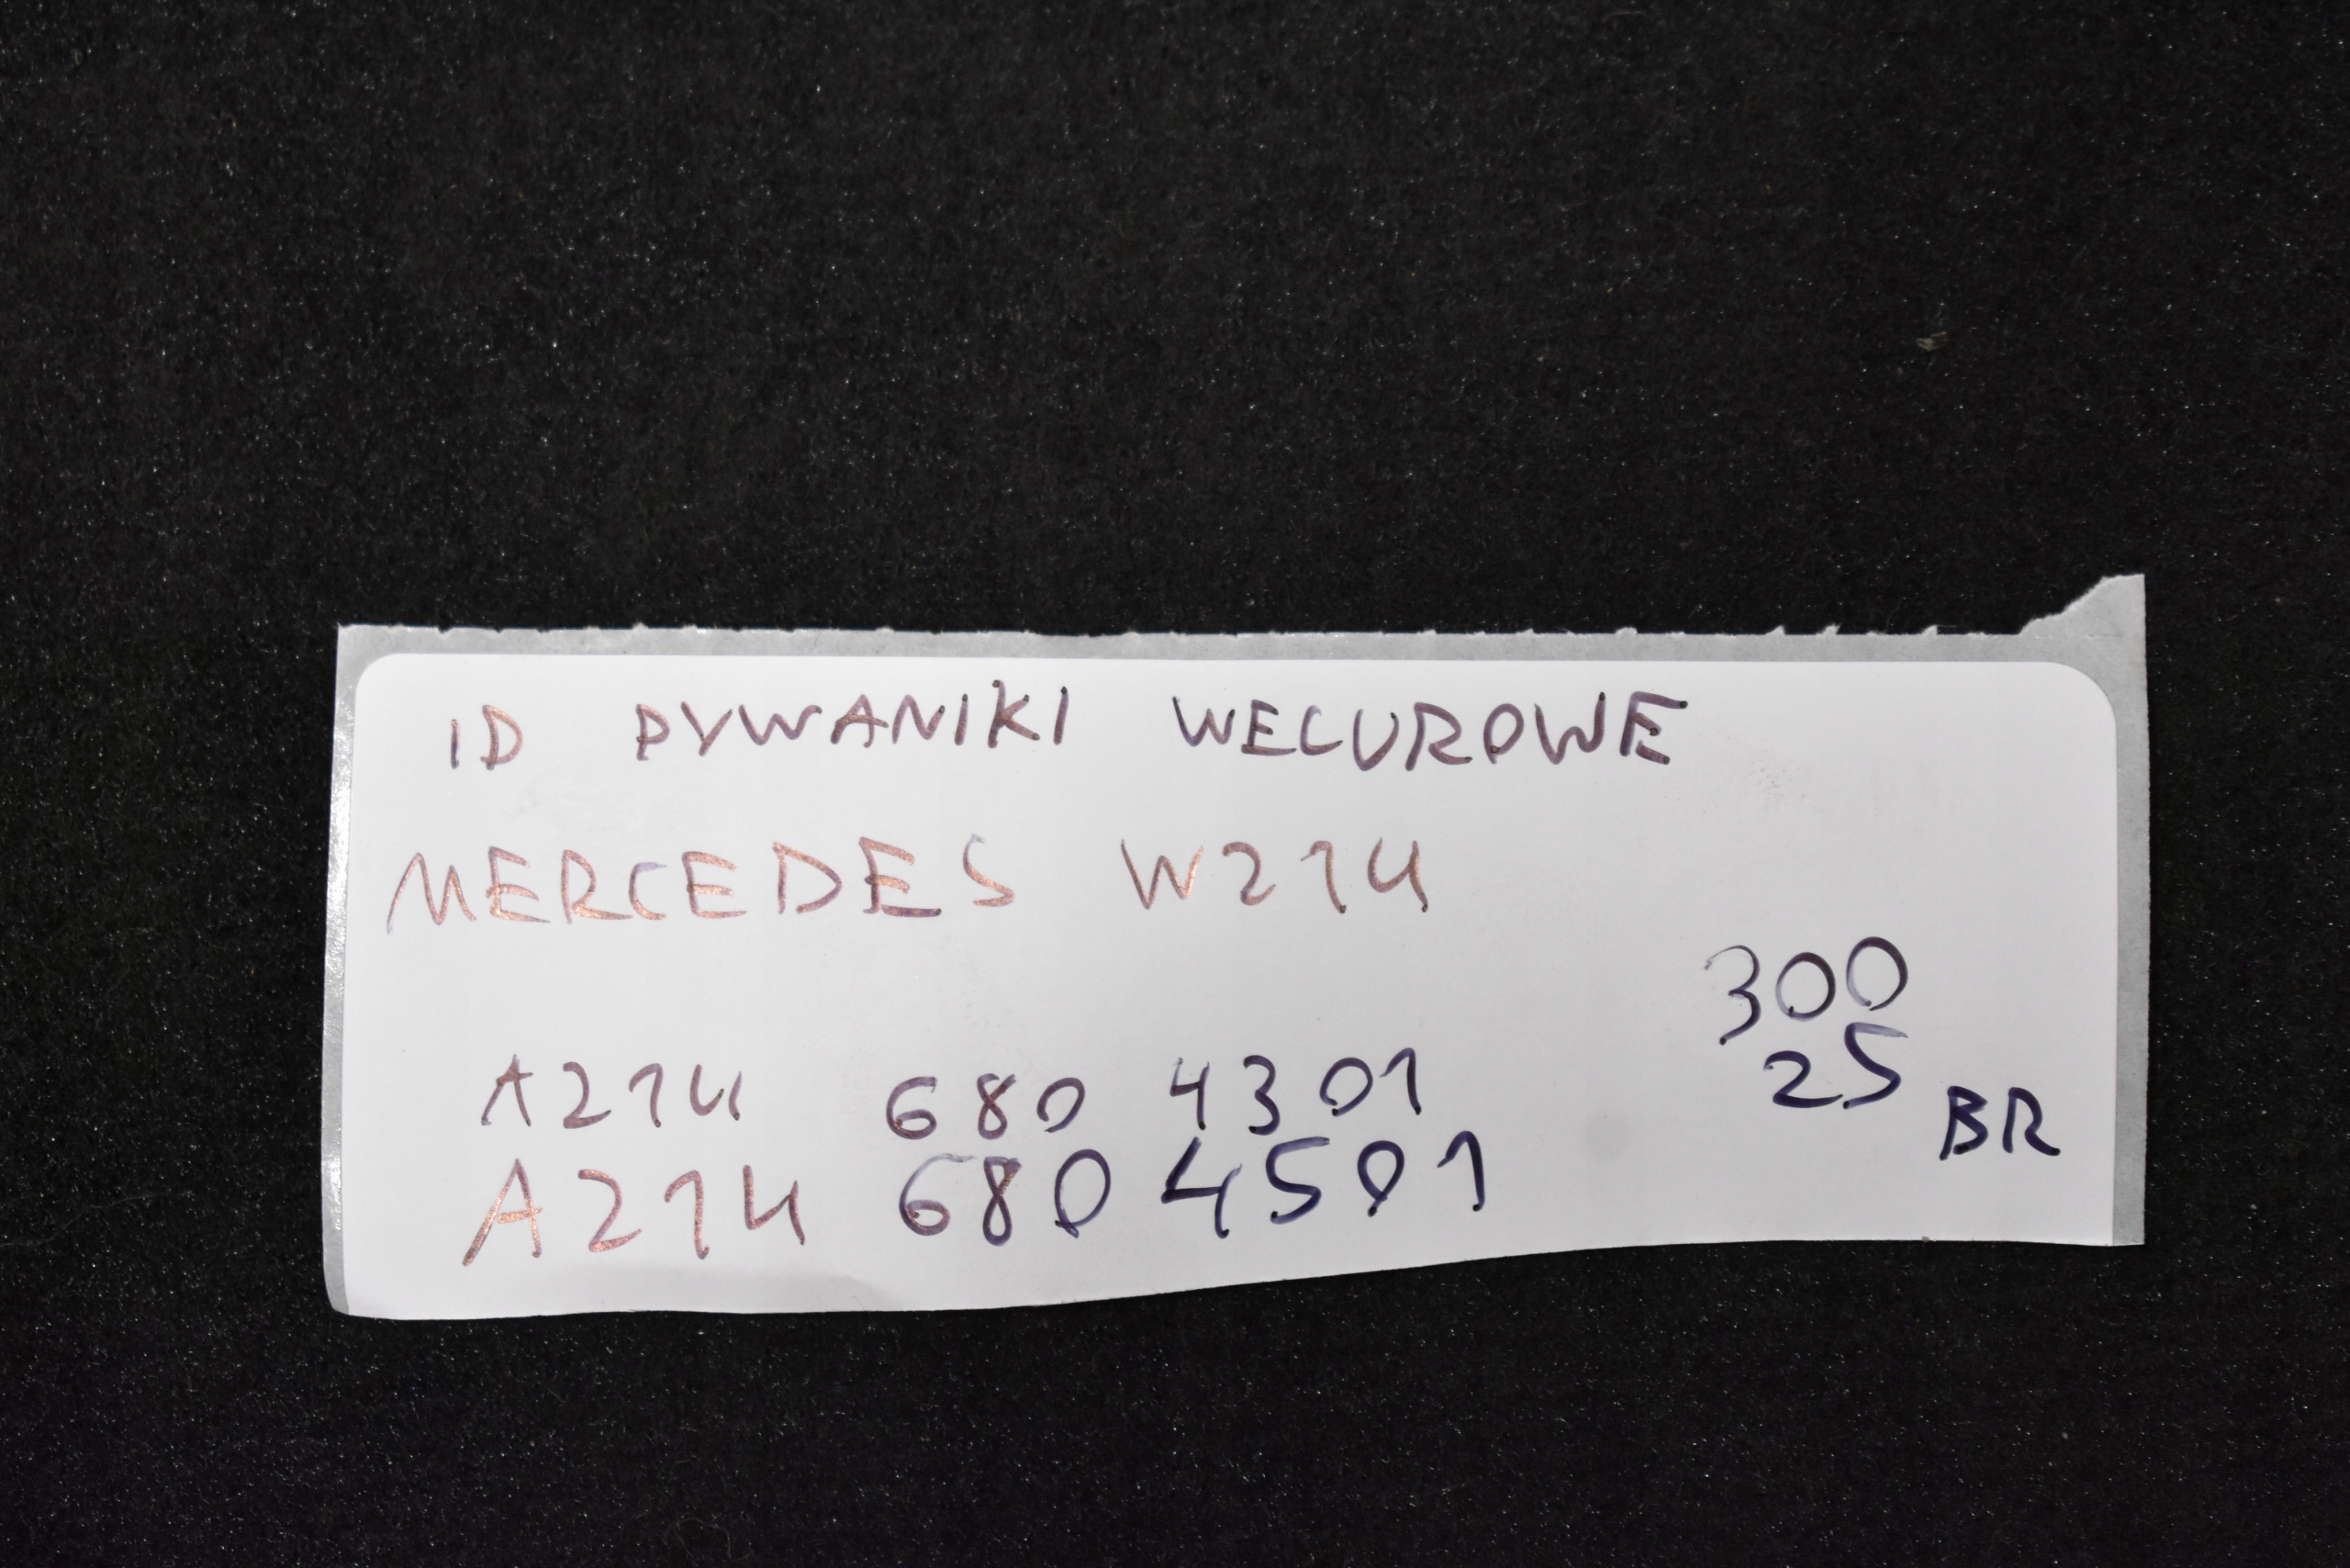 ID DYWANIKI WELUROWE
MERCEDES W214
300
25
A214 680 4301
BR
A214 680 4501